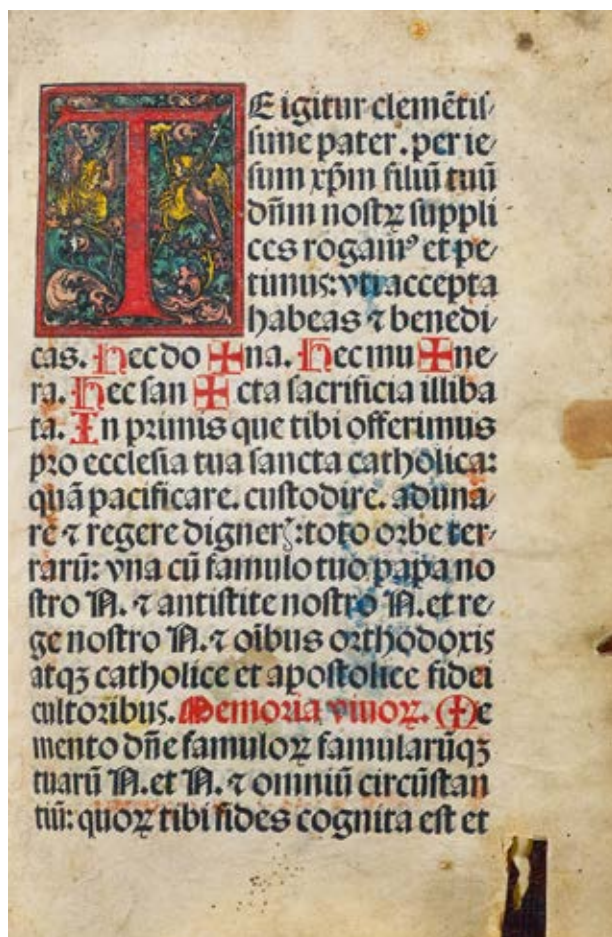 TE igitur clemētis⸗
sime pater. per ie⸗
sum xp̄m filiū tuū
dn̄m nostꝝ suppli
ces rogamꝰ et pe⸗
timus: vt accepta
habeas ⁊ benedi⸗
cas. Hec do ✠ na. Hec mu ✠ ne⸗
ra. Hec san ✠ cta sacrificia illiba
ta. In primis que tibi offerimus
pro ecclesia tua sancta catholica:
quā pacificare. custodire. aduna⸗
re ⁊ regere digner̃: toto orbe ter⸗
rarū: vna cū famulo tuo papa no
stro N. ⁊ antistite nostro N. et re⸗
ge nostro N. ⁊ oībus orthodoxis
atqꝫ catholice et apostolice fidei
cultoribus. Memoria viuoꝝ. Me
mento dn̄e famuloꝝ famularūqꝫ
tuarū N. et N. ⁊ omniū circūstan
tiū: quoꝝ tibi fides cognita est et